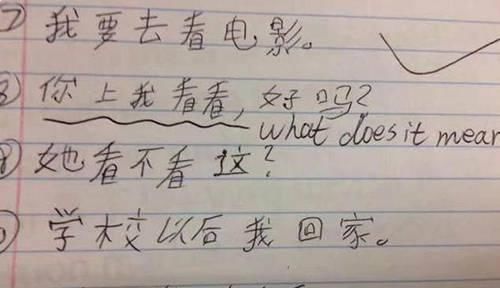 ⑦ 我要去看电影。
⑧ 你上我看看,好吗?
what does it mean
⑨ 她看不看这?
⑩ 学校以后我回家。